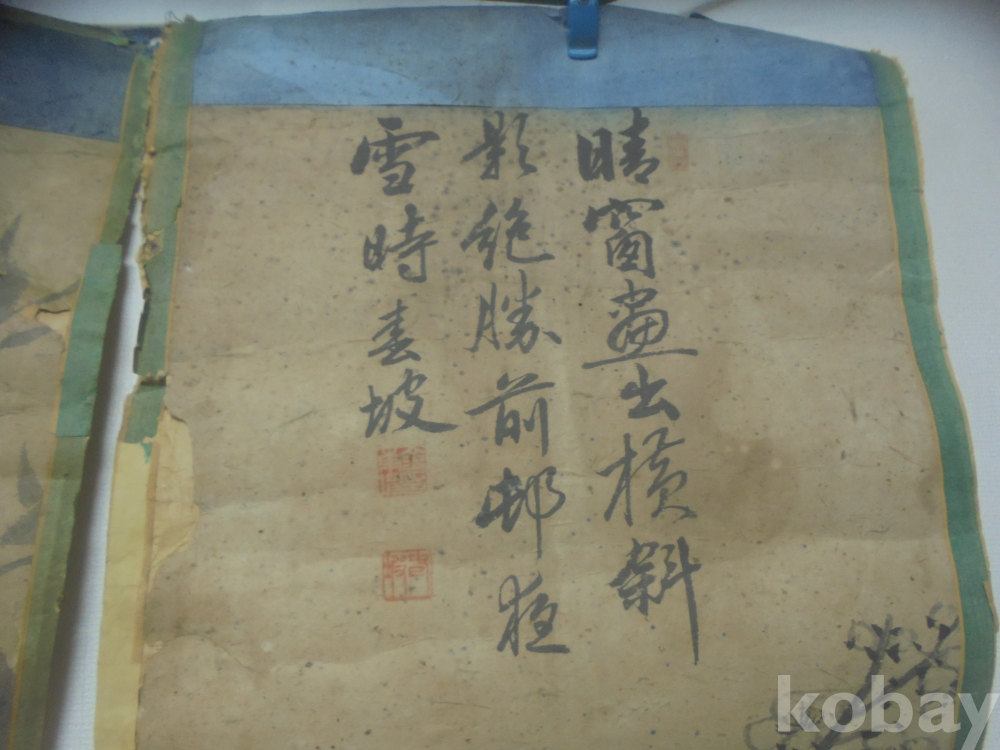 晴窗畫出橫斜
影絶勝前邨夜
雪時春坡
kobay